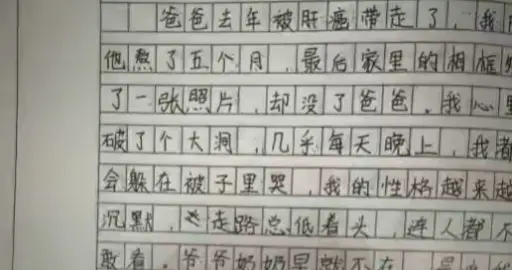 爸爸去年被肝癌带走了，我
他熬了五个月，最后家里的相框
了一张照片，却没了爸爸。我心里
破了个大洞，几乎每天晚上，我都
会躲在被子里哭，我的性格越来越
沉默，走路总低着头，连人都不
敢看。爷爷奶奶早就不在